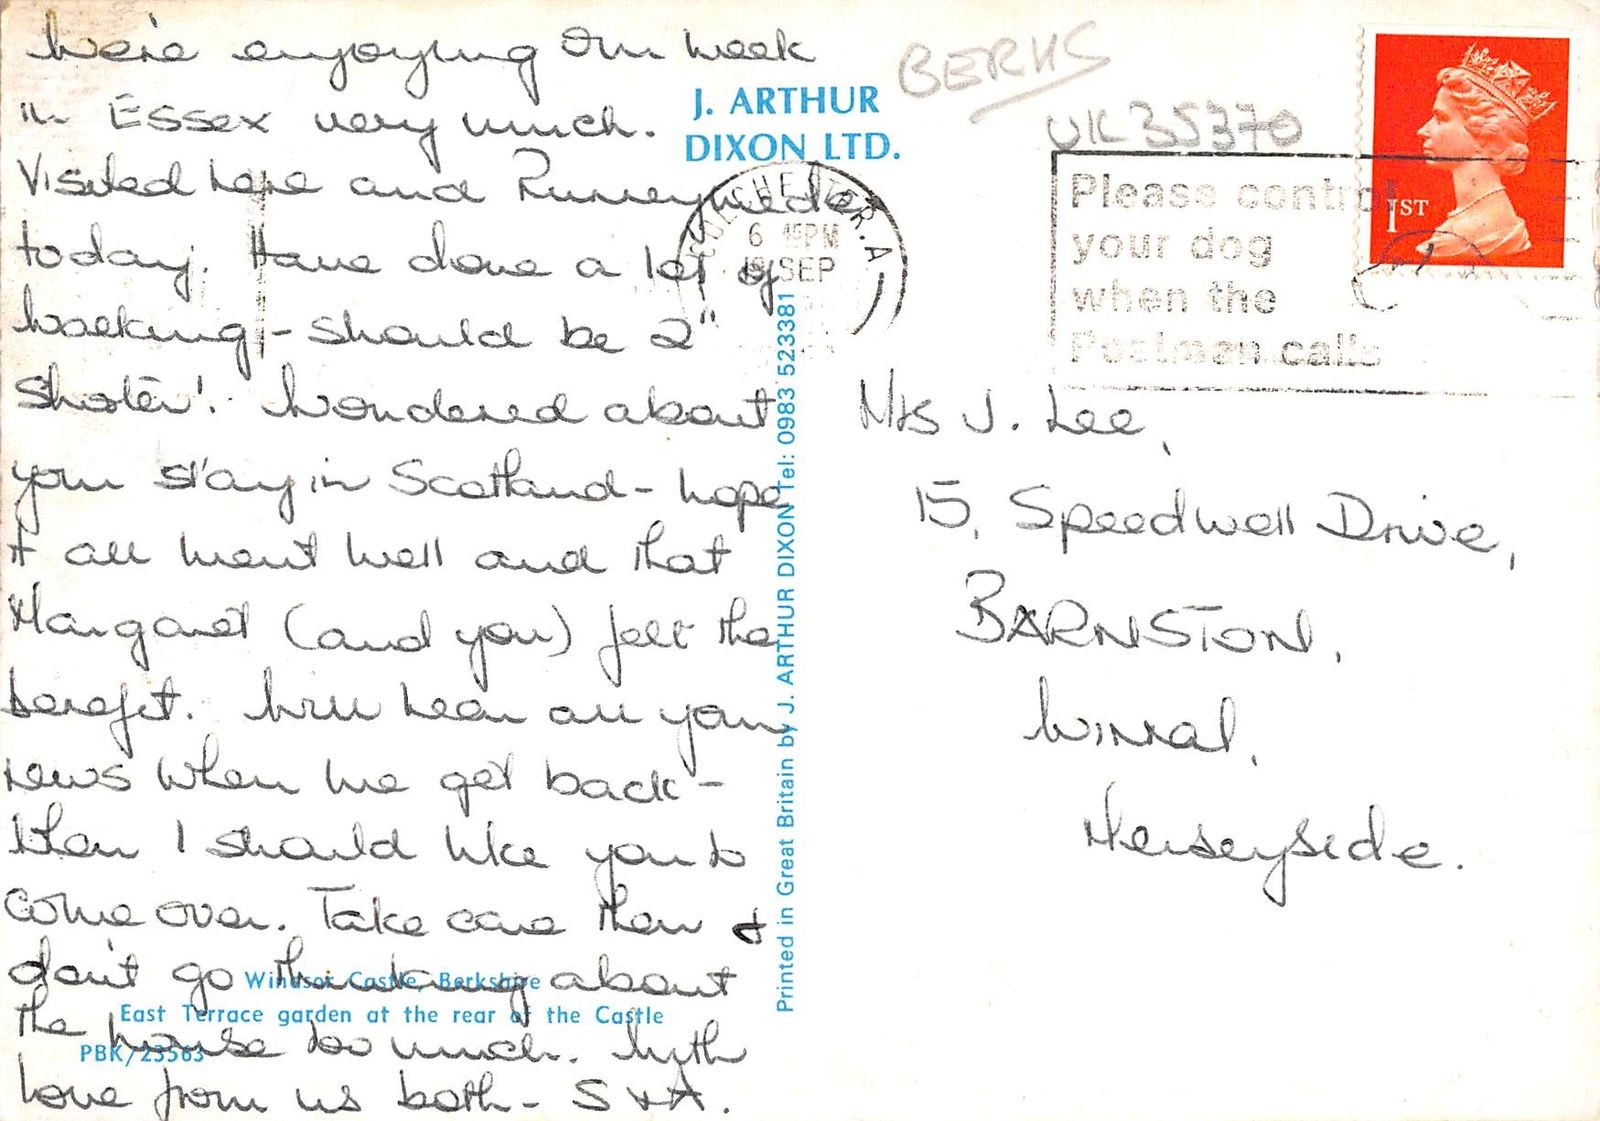 We're enjoying our week
in Essex very much.
Visited here and Runneymede
today. Have done a lot of
walking - should be 2"
shorter! Wondered about
your stay in Scotland - hope
it all went well and that
Margaret (and you) felt the
benefit. Will hear all your
news when we get back -
then I should like you to
come over. Take care then &
don't go thinking about
the house too much. With
love from us both - S & A.
Windsor Castle, Berkshire
East Terrace garden at the rear of the Castle
PBK/23563
J. ARTHUR
DIXON LTD.
Printed in Great Britain by J. ARTHUR DIXON Tel: 0983 523381
BERKS
UK 35370
COLCHESTER. A
6 15PM
SEP
Please control
your dog
when the
Postman calls
1ST
Mrs J. Lee,
15, Speedwell Drive,
BARNSTON,
Wirral,
Merseyside.